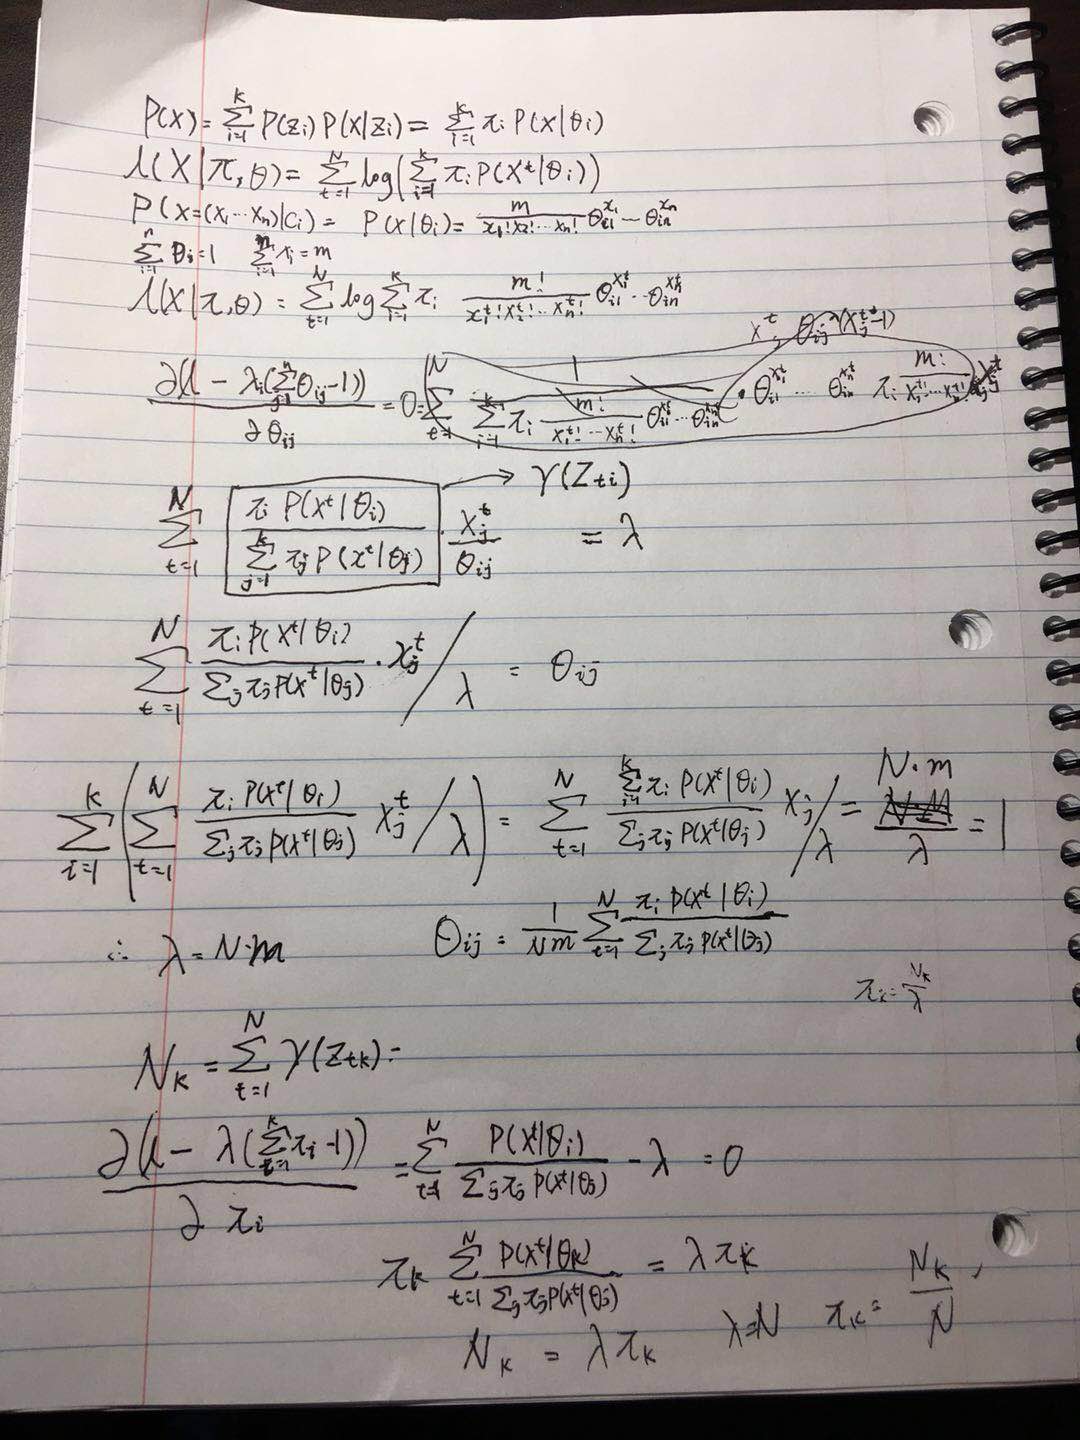 P(X) = Σ_{i=1}^{K} P(Zi) P(X|Zi) = Σ_{i=1}^{K} πi P(X|θi)
l(X|π,θ) = Σ_{t=1}^{N} log(Σ_{i=1}^{K} πi P(X^t|θi))
P(X=(x1···xn)|Ci) = P(X|θi) = m/(x1!x2!···xn!) θ_{i1}^{x1} ··· θ_{in}^{xn}
Σ_{i=1}^{n} θij=1 Σ_{i=1}^{n} xi=m
l(X|π,θ) = Σ_{t=1}^{N} log Σ_{i=1}^{K} πi m!/(x1^t!x2^t!···xn^t!) θ_{i1}^{x1^t} ··· θ_{in}^{xn^t}
xj^t θij^(xj^t-1)
∂(l - λi(Σ_{j=1}^{n} θij-1))/∂θij = 0 = Σ_{t=1}^{N} 1/(Σ_{i=1}^{K} πi m!/(x1^t!···xn^t!) θ_{i1}^{x1^t}···θ_{in}^{xn^t}) · θ_{i1}^{x1^t} ···· θ_{in}^{xn^t} πi m!/(x1^t!···xn^t!)
Σ_{t=1}^{N} πi P(X^t|θi)/(Σ_{j=1}^{K} πj P(x^t|θj)) · xj^t/θij = λ → γ(Zti)
Σ_{t=1}^{N} πi P(X^t|θi)/(Σj πj P(X^t|θj)) · xj^t / λ = θij
Σ_{i=1}^{K} (Σ_{t=1}^{N} πi P(X^t|θi)/(Σj πj P(X^t|θj)) xj^t / λ) = Σ_{t=1}^{N} Σ_{i=1}^{K} πi P(X^t|θi)/(Σj πj P(X^t|θj)) xj / λ = N·m/λ = 1
∴ λ = N·m θij = 1/(Nm) Σ_{t=1}^{N} πi P(X^t|θi)/(Σj πj P(X^t|θj))
πi = NK/λ
NK = Σ_{t=1}^{N} γ(Ztk) =
∂(l - λ(Σ_{i=1}^{K} πi-1))/∂πi = Σ_{t=1}^{N} P(X^t|θi)/(Σj πj P(X^t|θj)) - λ = 0
πk Σ_{t=1}^{N} P(X^t|θk)/(Σj πj P(X^t|θj)) = λπk
Nk = λπk λ=N πk = Nk/N,